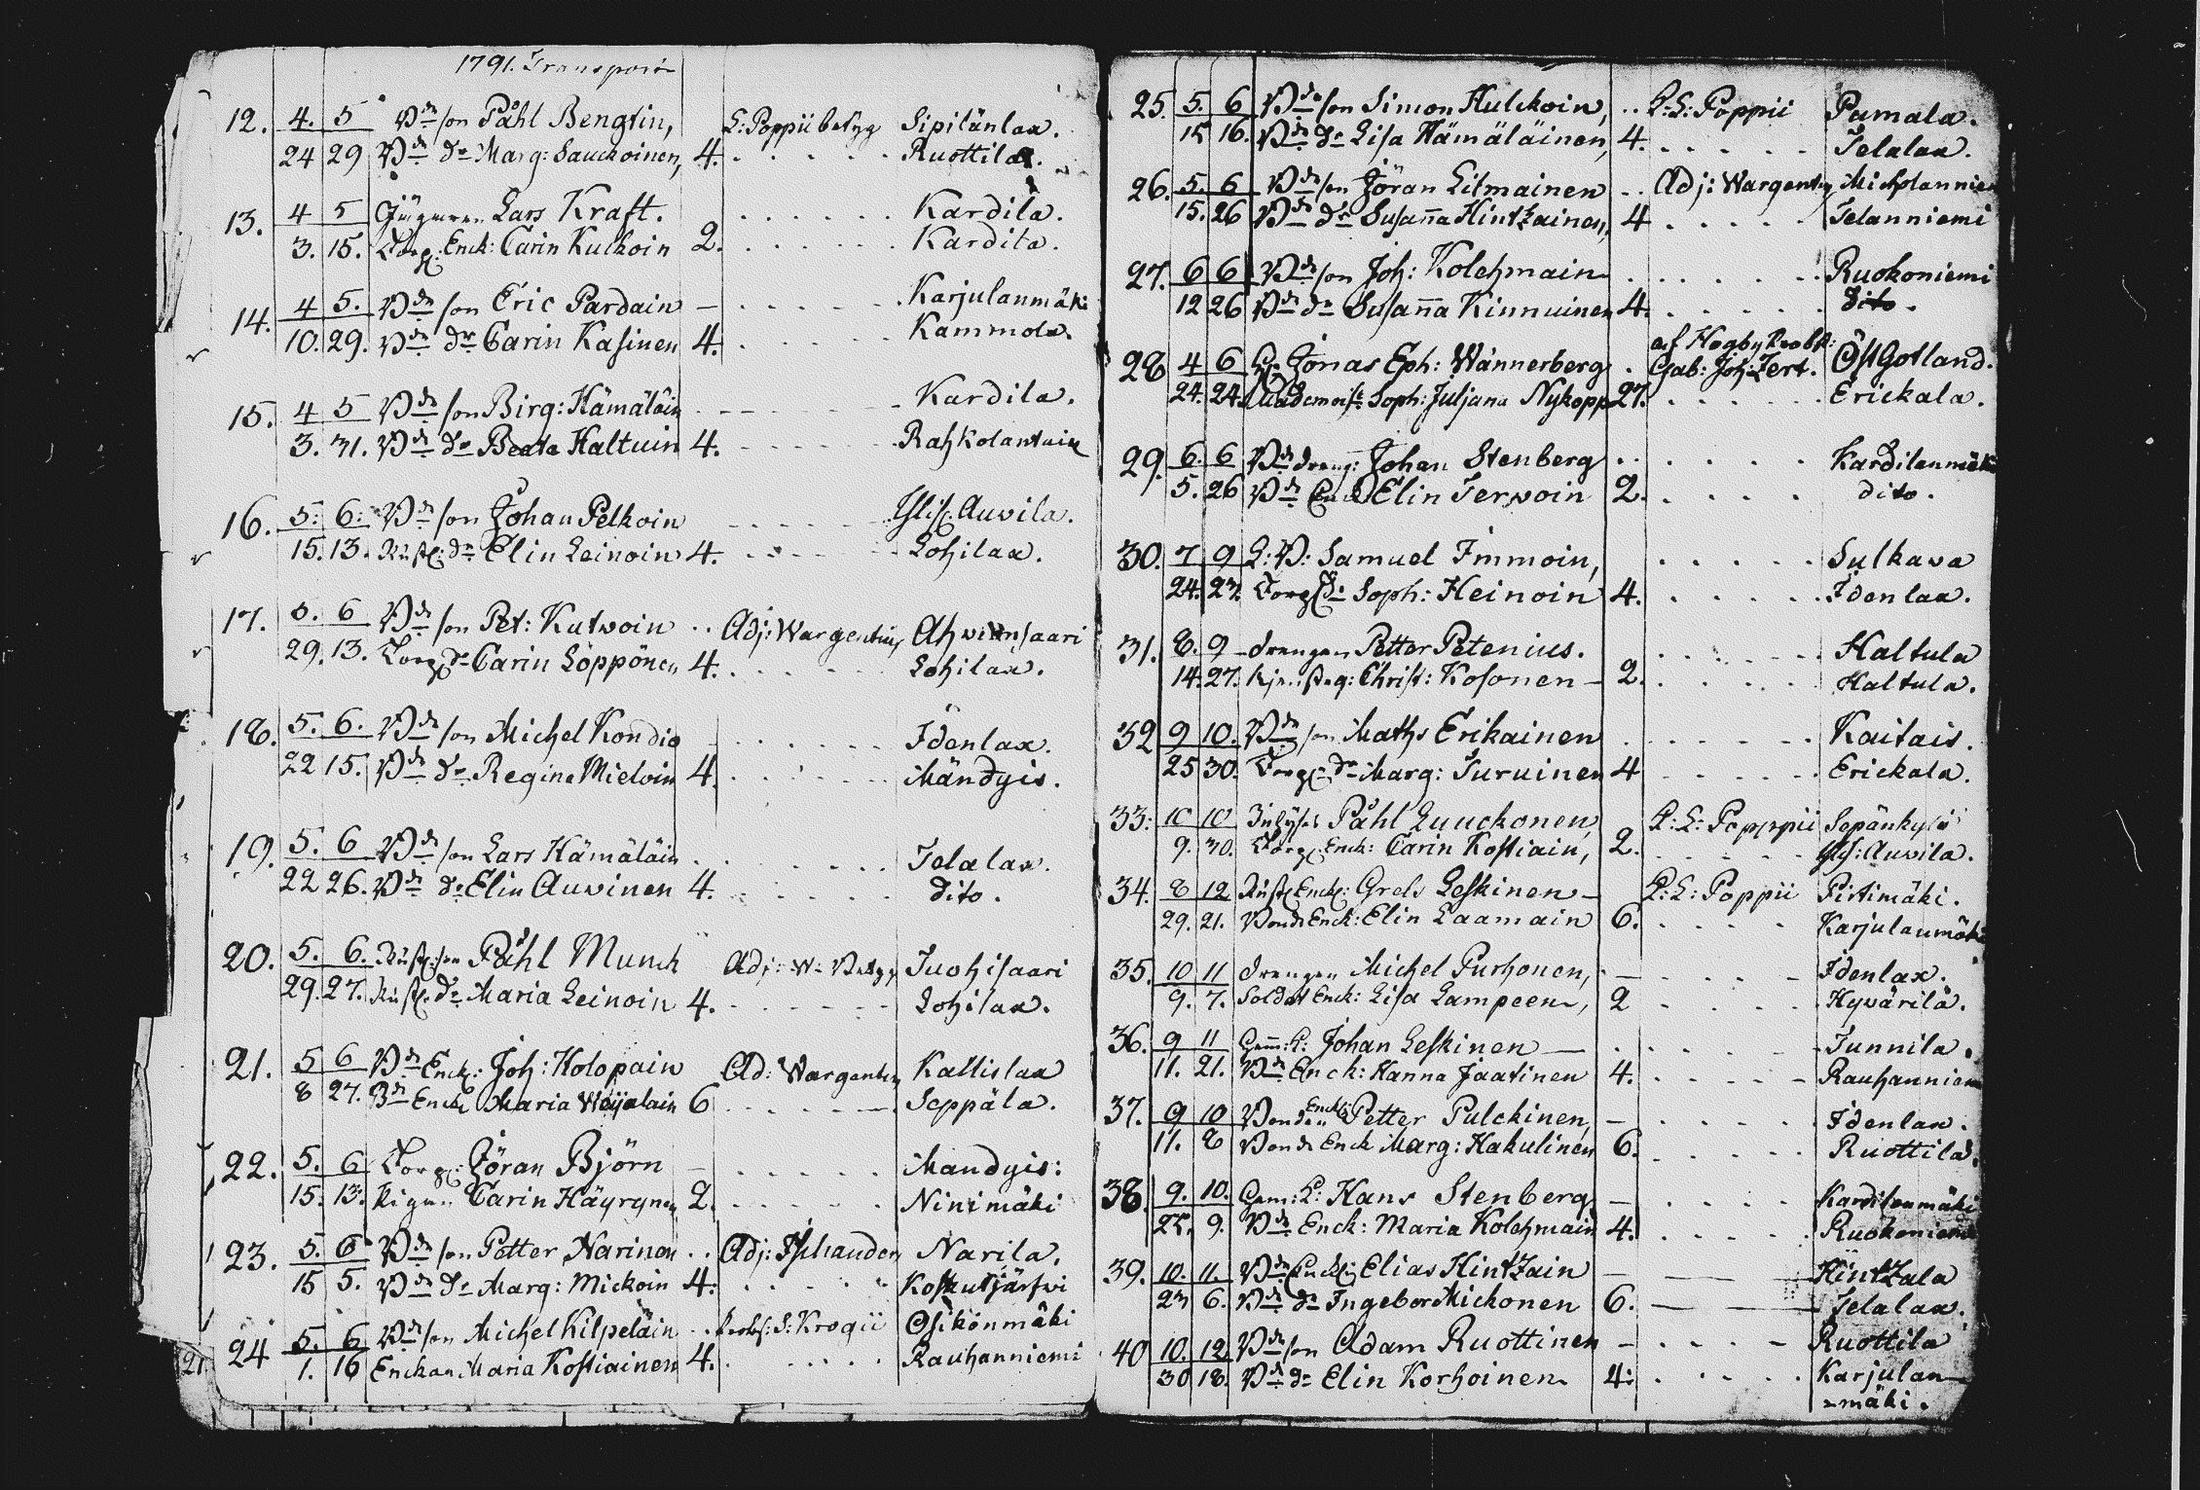 1791. Transport
12. 4. 5 Bde son Påhl Bengtin, L: Poppii betyg Sipilänlax.
24 29 Bde dr Marg: Sauckoinen, 4. Ruottila.
13. 4 5 Lars Kraft. Kardila.
3. 15. Torp: Enck: Carin Kuikoin 2. Kardila.
14. 4 5. Bde son Eric Pardain Karjulanmäki
10. 29. Bde dr Carin Kasinen 4. Kammola.
15. 4 5 Bde son Birg: Hämäläin Kardila.
3. 31. Bde dr Beata Haltuin 4.
16. 5: 6: Bde son Johan Pelkoin Auvila.
15. 13. dr Elin Leinoin 4. Lohilax.
17. 5. 6 Bde son Pet: Kutvoin Adj: Wargentin Ahvionsaari
29. 13. Torp dr Carin Löppönen 4. Lohilax.
18. 5. 6. Bde son Michel Kondio Idenlax.
22 15. Bde dr Regina Mieloin 4. Mändyis.
19. 5. 6 Bde son Lars Hämäläin Telalax.
22 26. Bde dr Elin Auvinen 4. dito.
20. 5. 6. son Påhl Munck Adj: W: Betyg Juohisaari
29. 27. dr Maria Leinoin 4. Lohilax.
21. 5 6 Bde Enckl: Joh: Holopain Ad: Wargentin Kallislax
8 27. Bde Enck Maria Weijalain 6 Seppälä.
22. 5. 6 Torp: Jöran Björn Mandyis:
15. 13. Pigan Carin Häyrynen 2. Ninimäki
23. 5. 6 Bde son Petter Narinen Adj: Narila.
15 5. Bde dr Marg: Mickoin 4. Koskutjärfwi
24 5. 6 Bde son Michel Kilpeläin S: Krogii Osikonmäki
1. 16 Enckan Maria Kostiainen 4. Rauhanniemi
21.
25. 5. 6 Bde son Simon Hulckoin, P: L: Poppii Pumala.
15 16. Bde dr Lisa Hämäläinen, 4. Telalax.
26. 5. 6 Bde son Jöran Litmainen Adj: Wargentin
15. 26 Bde dr Susanna Hintzainen, 4 Telanniemi
27. 6 6 Bde son Joh: Kolehmain Ruokoniemi
12 26 Bde dr Susanna Kinnuinen 4. dito.
af Högby
28 4 6 Jonas Eph: Wännerberg Gab: Joh: Östgotland.
24. 24. Mademois: Soph: Juljana Nykopp 27. Erickala.
29. 6. 6 Bde dreng: Johan Stenberg Kardilanmäki
5. 26 Bde Enck Elin Terwoin 2. dito.
30. 7 9 L: B: Samuel Immoin, Sulkava
24. 27. Torp dr Soph: Heinoin 4. Idenlax.
31. 8. 9 drengen Petter Petenius. Haltula
14. 27. Christ: Kosonen 2. Haltula.
32 9 10. Bde son Maths Erikainen Kaitais.
25 30. Torp: dr Marg: Turuinen 4 Erickala.
33: 10 10 Inhyses Påhl Luuckonen, P: L: Popppii Sepänkylä
9. 30. Torp: Enck: Carin Kostiain, 2. Auvila.
34. 8 12 Enckl: Grels Leskinen P: L: Poppii Pirtimäki.
29. 21. Bonde Enck: Elin Laamain 6. Karjulanmäki
35. 10 11 drengen Michel Purhonen, Idenlax.
9. 7. Soldat Enck: Lisa Lampeen, 2 Hyvärilä.
36. 9 11 Gem: K: Johan Leskinen Tunnila.
11. 21. Bde Enck: Hanna Jaatinen 4. Rauhanniem
37. 9 10 Bonden Enckl: Petter Pulckinen, Idenlax.
11. 8 Bonde Enck Marg: Hakulinen 6. Ruottila.
38. 9. 10. Gem: K: Hans Stenberg Kardilanmäki
25. 9. Bde Enck: Maria Kolehmain 4. Ruokoniemi
39. 10. 11. Bde Enckl: Elias Hintzain Hintzala
27 6. Bde dr Ingebor Mickonen 6. Telalax.
40 10. 12 Bde son Adam Ruottinen Ruottila
30 18. Bde dr Elin Korhoinen 4: Karjulan
=mäki.